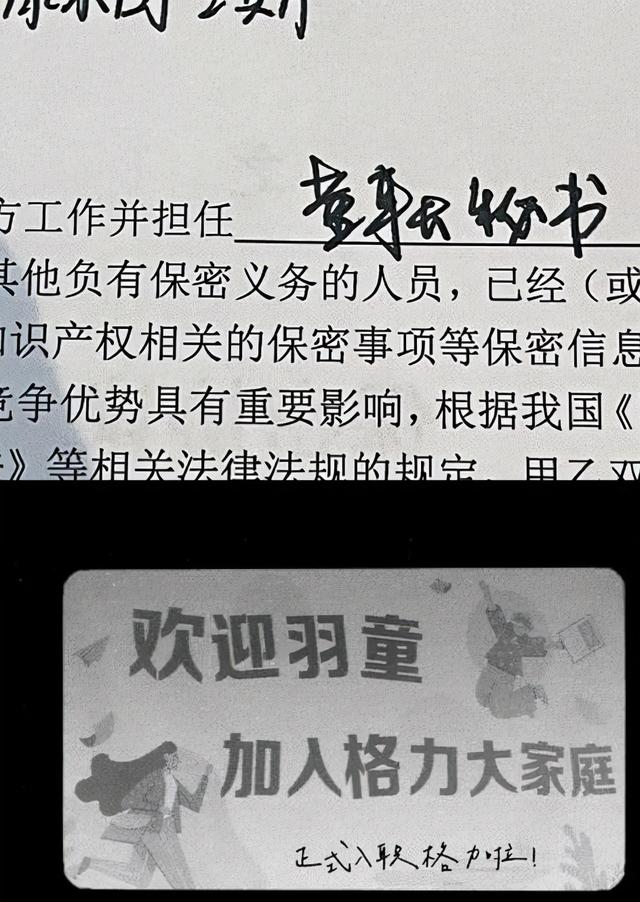 方工作并担任 董事长秘书
其他负有保密义务的人员，已经（或
识产权相关的保密事项等保密信息
竞争优势具有重要影响，根据我国《
》等相关法律法规的规定，甲乙双
欢迎羽童
加入格力大家庭
正式入职格力啦！